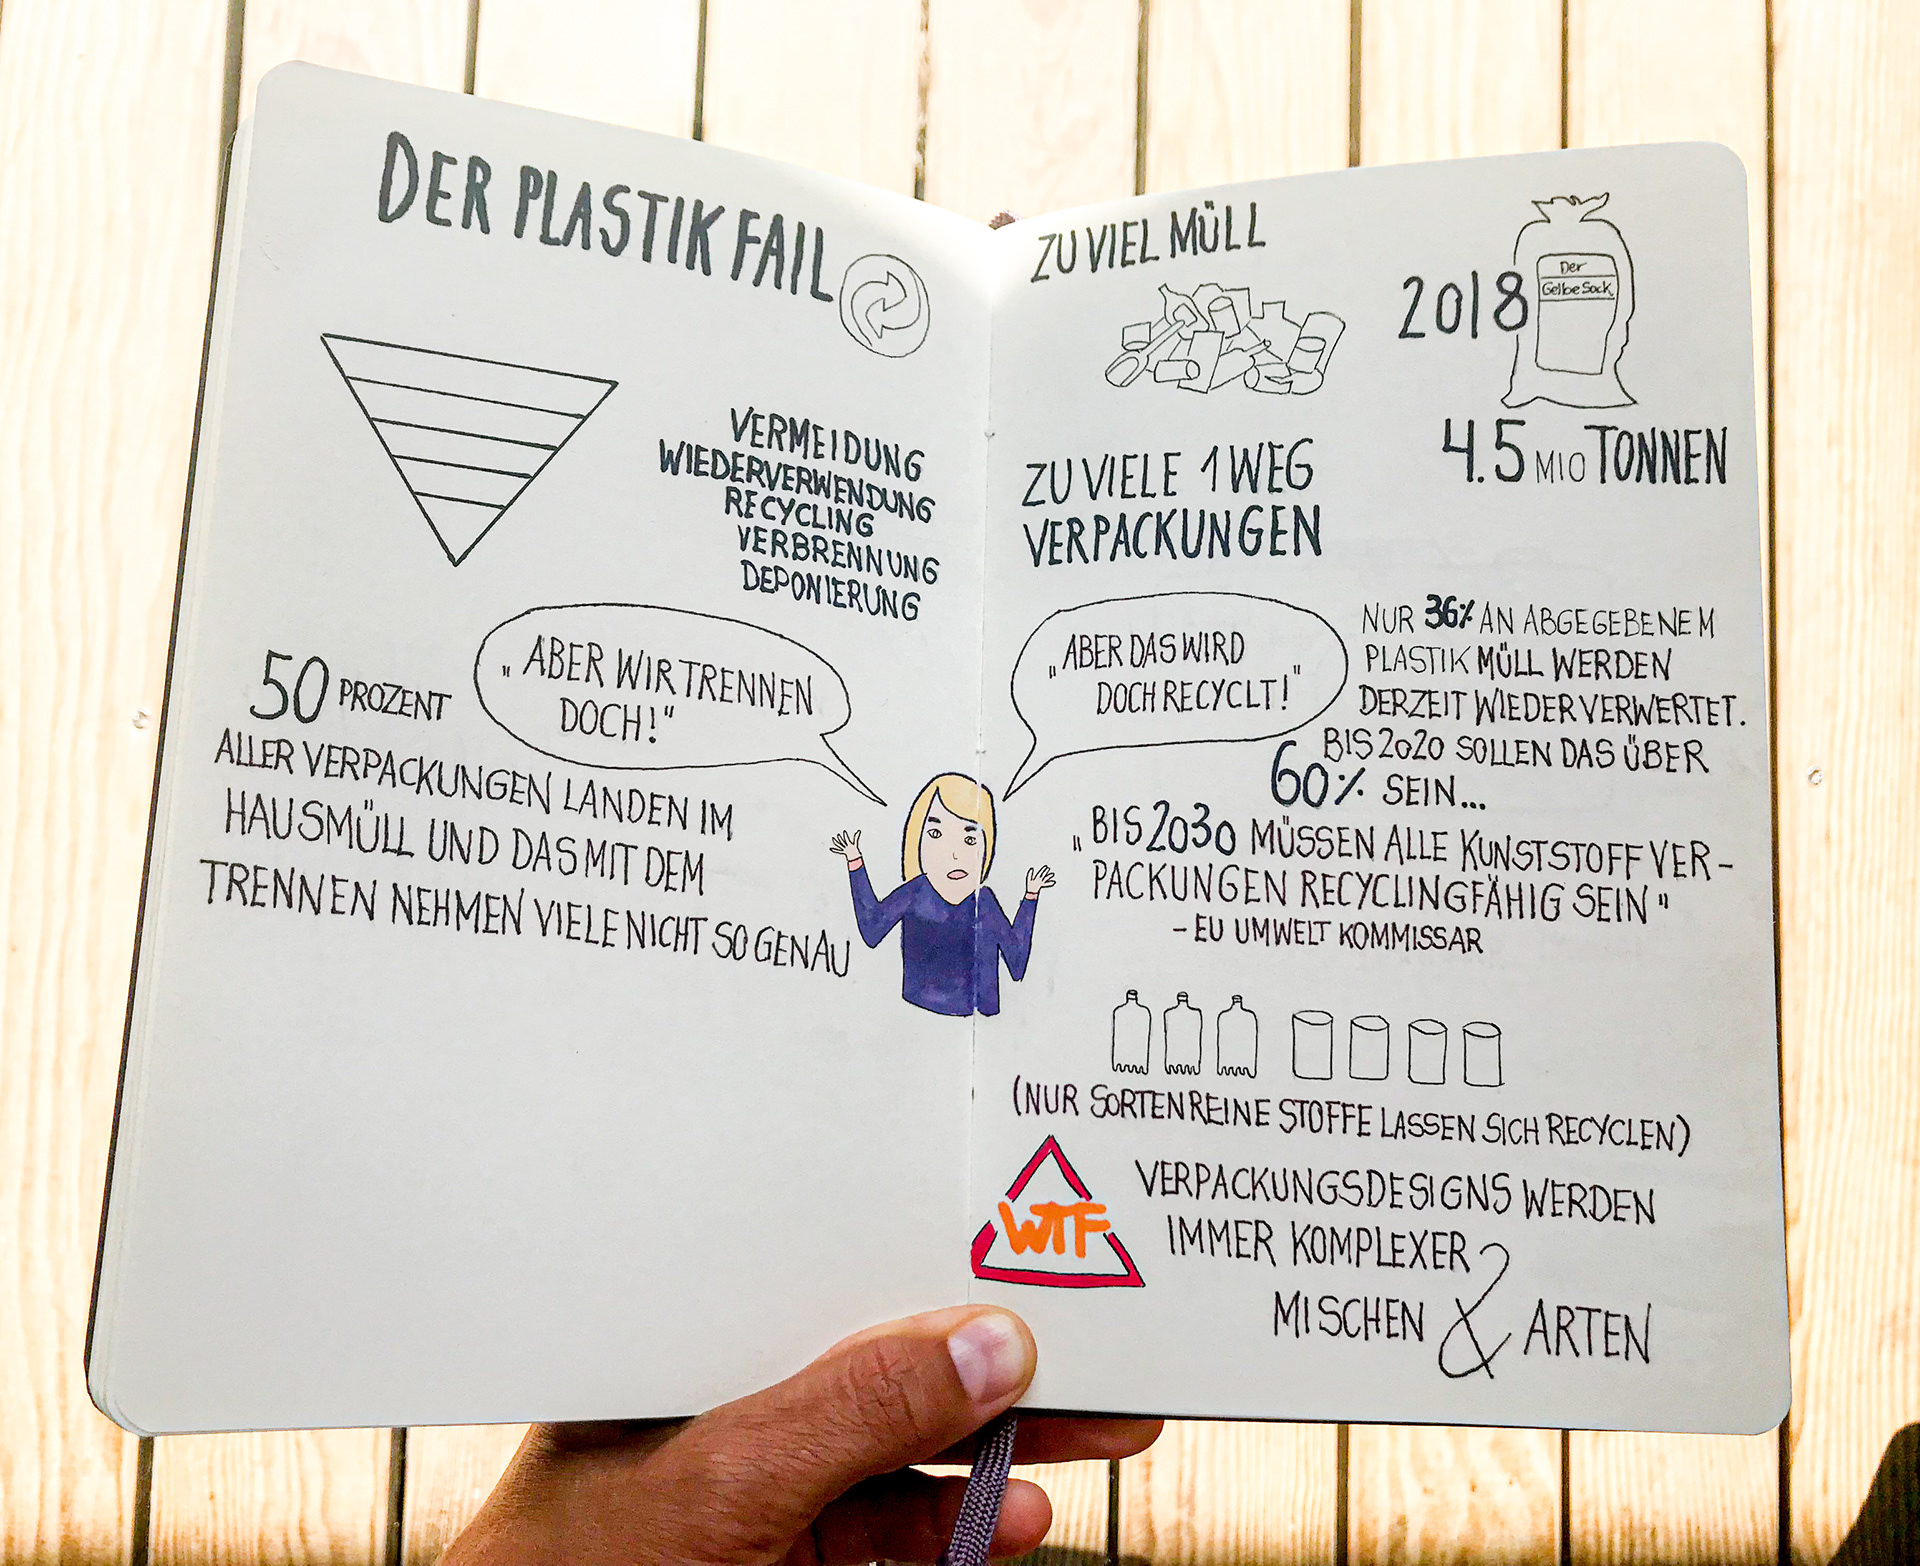 DER PLASTIK FAIL
VERMEIDUNG
WIEDERVERWENDUNG
RECYCLING
VERBRENNUNG
DEPONIERUNG
„ABER WIR TRENNEN
DOCH!"
50 PROZENT
ALLER VERPACKUNGEN LANDEN IM
HAUSMÜLL UND DAS MIT DEM
TRENNEN NEHMEN VIELE NICHT SO GENAU
ZU VIEL MÜLL
2018
Der
Gelbe Sack
4.5 MIO TONNEN
ZU VIELE 1WEG
VERPACKUNGEN
„ABER DAS WIRD
DOCH RECYCLT!"
NUR 36% AN ABGEGEBENEM
PLASTIK MÜLL WERDEN
DERZEIT WIEDERVERWERTET.
BIS 2020 SOLLEN DAS ÜBER
60% SEIN...
„BIS 2030 MÜSSEN ALLE KUNSTSTOFFVER-
PACKUNGEN RECYCLINGFÄHIG SEIN"
- EU UMWELT KOMMISSAR
(NUR SORTENREINE STOFFE LASSEN SICH RECYCLEN)
WTF
VERPACKUNGSDESIGNS WERDEN
IMMER KOMPLEXER
MISCHEN & ARTEN